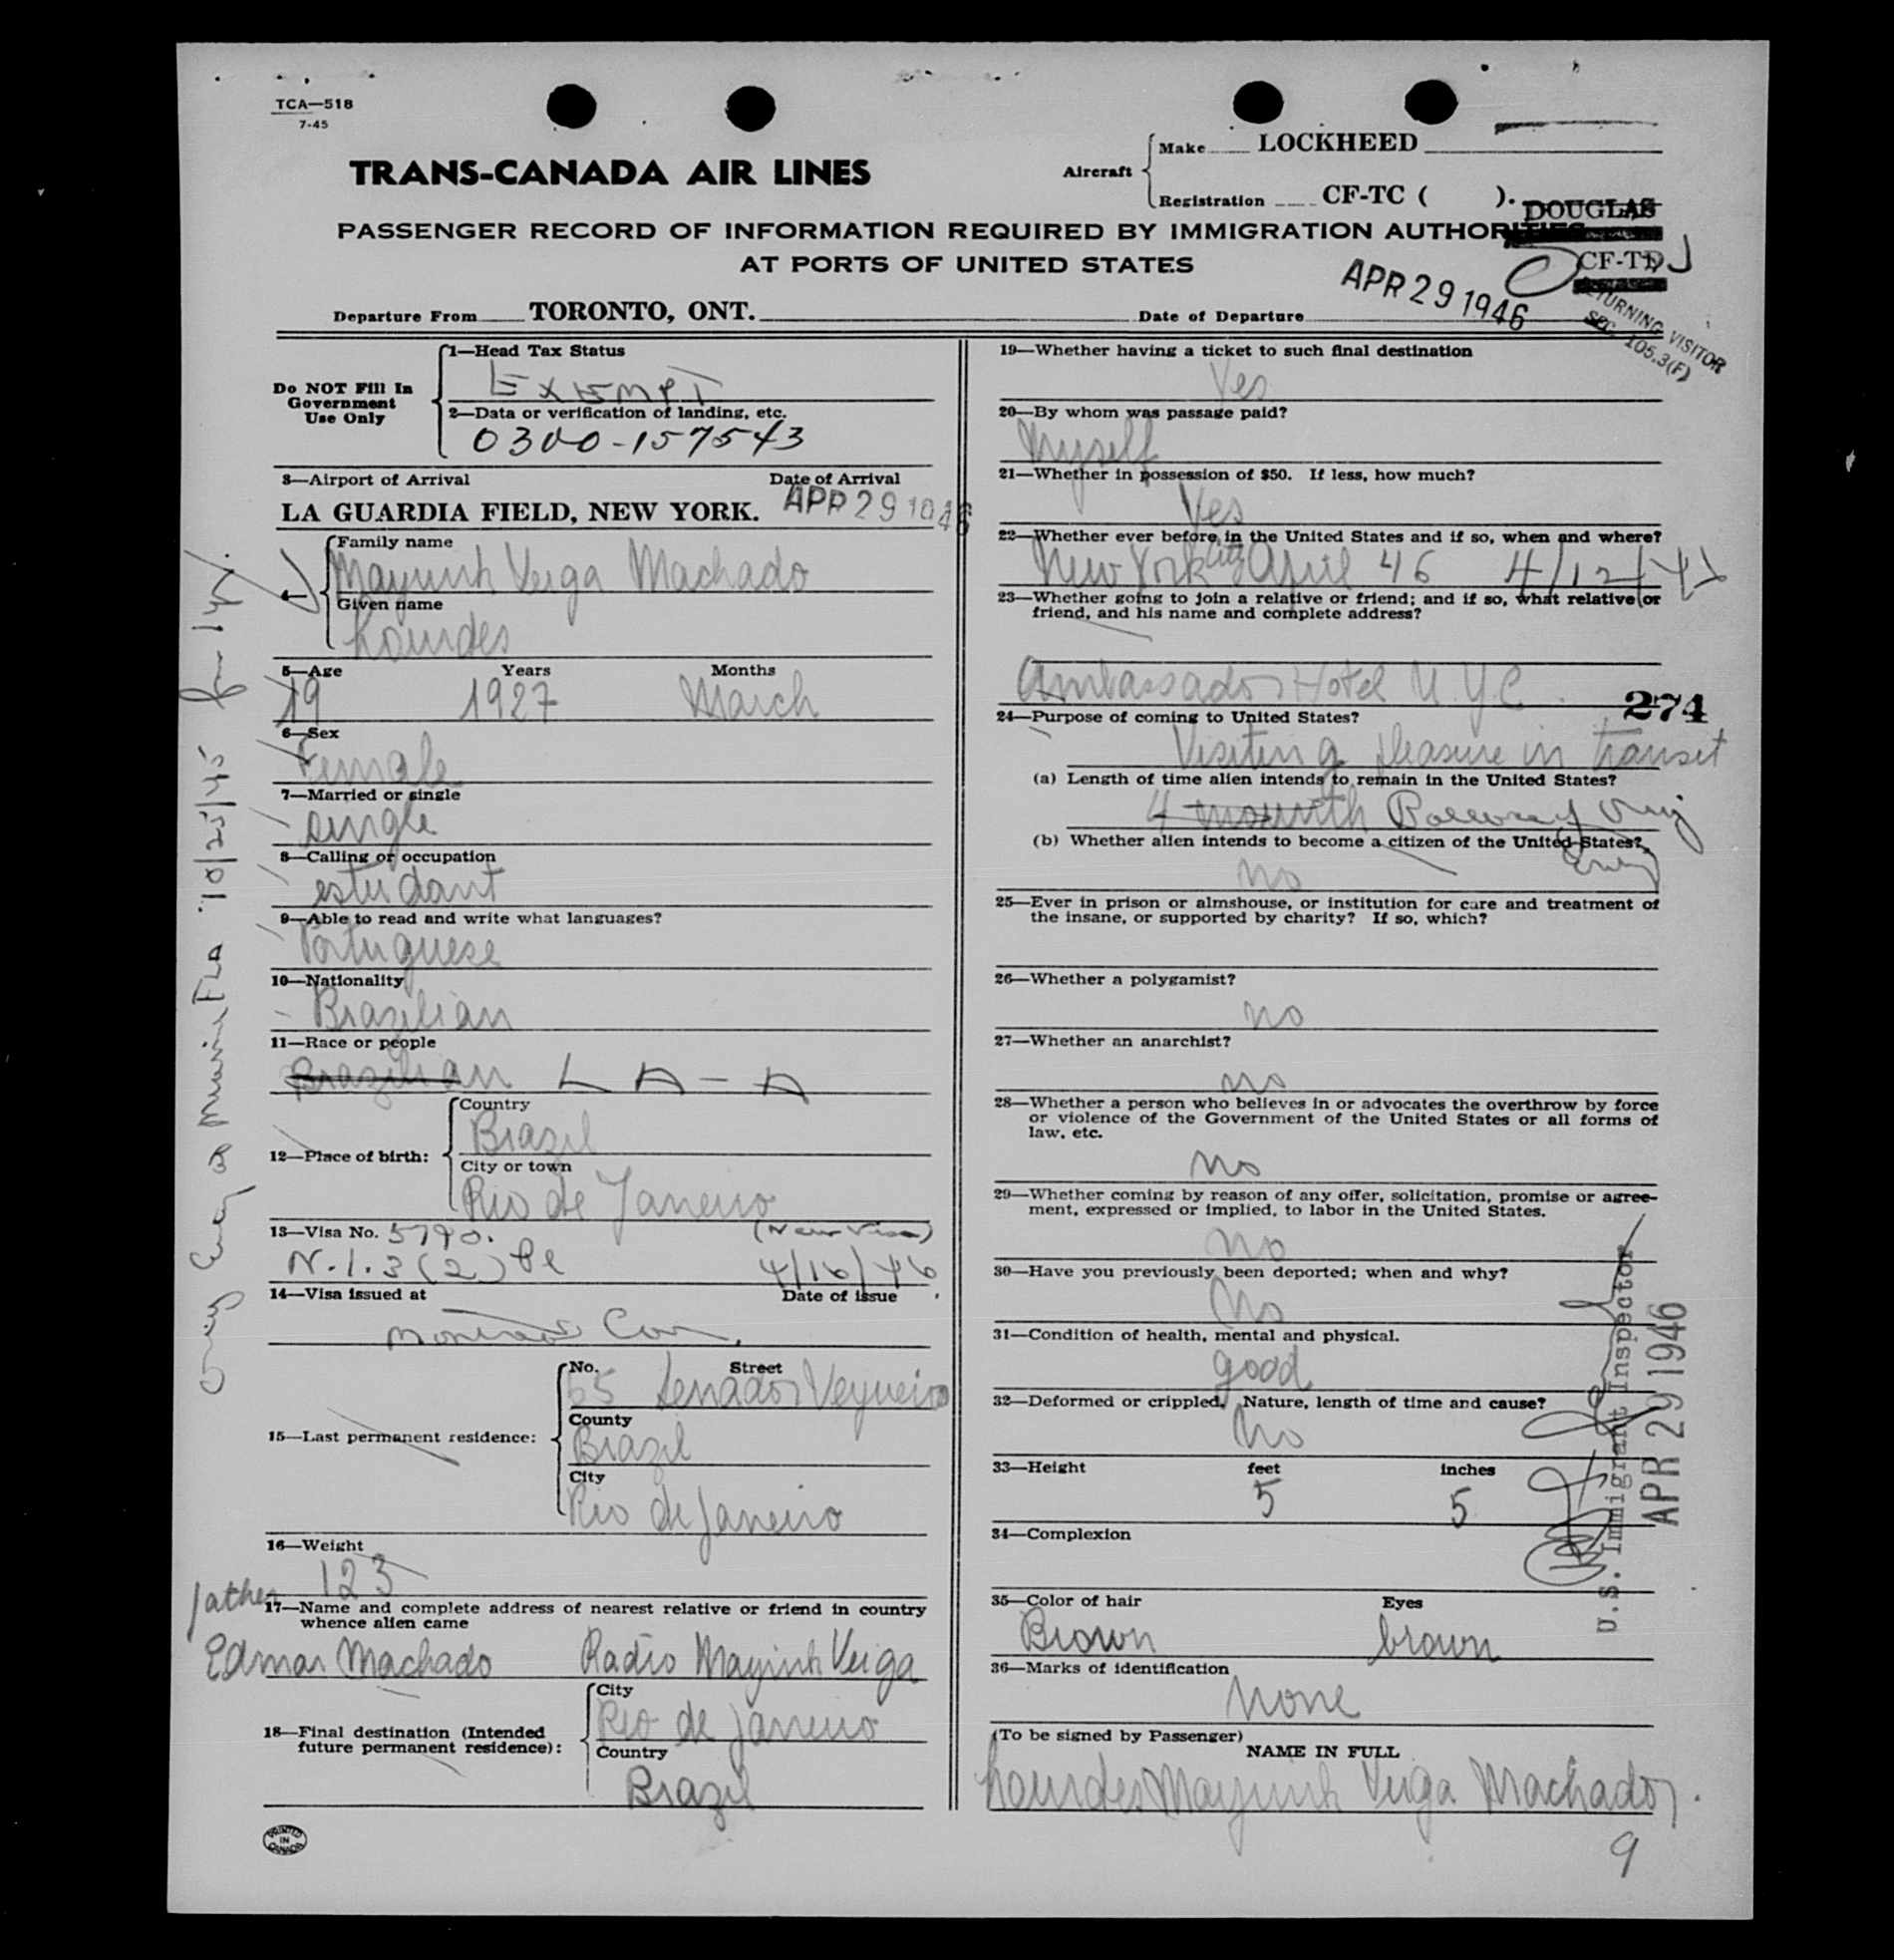 TCA—518
7-45
TRANS-CANADA AIR LINES
Aircraft
Make LOCKHEED
Registration CF-TC ( ).
DOUGLAS
CF-TD
PASSENGER RECORD OF INFORMATION REQUIRED BY IMMIGRATION AUTHORITIES
AT PORTS OF UNITED STATES
Departure From TORONTO, ONT. Date of Departure APR 29 1946
RETURNING VISITOR
SEC. 105.3(F)
Do NOT Fill In
Government
Use Only
1—Head Tax Status
EXEMPT
2—Data or verification of landing, etc.
0300-157543
3—Airport of Arrival Date of Arrival
LA GUARDIA FIELD, NEW YORK. APR 29 1946
Family name
Mayrink Veiga Machado
Given name
Lourdes
5—Age Years Months
19 1927 March
6—Sex
Female
7—Married or single
single
8—Calling or occupation
estudant
9—Able to read and write what languages?
Portuguese
10—Nationality
Brazilian
11—Race or people
Brazilian L A - A
12—Place of birth:
Country
Brazil
City or town
Rio de Janeiro
13—Visa No. 5790. (New Visa)
N.I. 3(2) 4/16/46
14—Visa issued at Date of issue
Montreal Can.
15—Last permanent residence:
No. Street
65 Senador Vergueiro
County
Brazil
City
Rio de Janeiro
16—Weight
123
father
17—Name and complete address of nearest relative or friend in country
whence alien came
Edmar Machado Radio Mayrink Veiga
18—Final destination (Intended
future permanent residence):
City
Rio de Janeiro
Country
Brazil
PRINTED
IN
CANADA
Miami FLA 10/25/45
19—Whether having a ticket to such final destination
Yes
20—By whom was passage paid?
Myself
21—Whether in possession of $50. If less, how much?
Yes
22—Whether ever before in the United States and if so, when and where?
New York City April 46
23—Whether going to join a relative or friend; and if so, what relative or
friend, and his name and complete address?
Ambassador Hotel N.Y.C.
274
24—Purpose of coming to United States?
Visiting pleasure in transit
(a) Length of time alien intends to remain in the United States?
4 mounth
(b) Whether alien intends to become a citizen of the United States?
no
25—Ever in prison or almshouse, or institution for care and treatment of
the insane, or supported by charity? If so, which?
26—Whether a polygamist?
no
27—Whether an anarchist?
no
28—Whether a person who believes in or advocates the overthrow by force
or violence of the Government of the United States or all forms of
law, etc.
no
29—Whether coming by reason of any offer, solicitation, promise or agree-
ment, expressed or implied, to labor in the United States.
no
30—Have you previously been deported; when and why?
No
31—Condition of health, mental and physical.
good
32—Deformed or crippled. Nature, length of time and cause?
No
33—Height feet inches
5 5
34—Complexion
35—Color of hair Eyes
Brown brown
36—Marks of identification
None
(To be signed by Passenger)
NAME IN FULL
Lourdes Mayrink Veiga Machado.
9
U.S. Immigrant Inspector
APR 29 1946